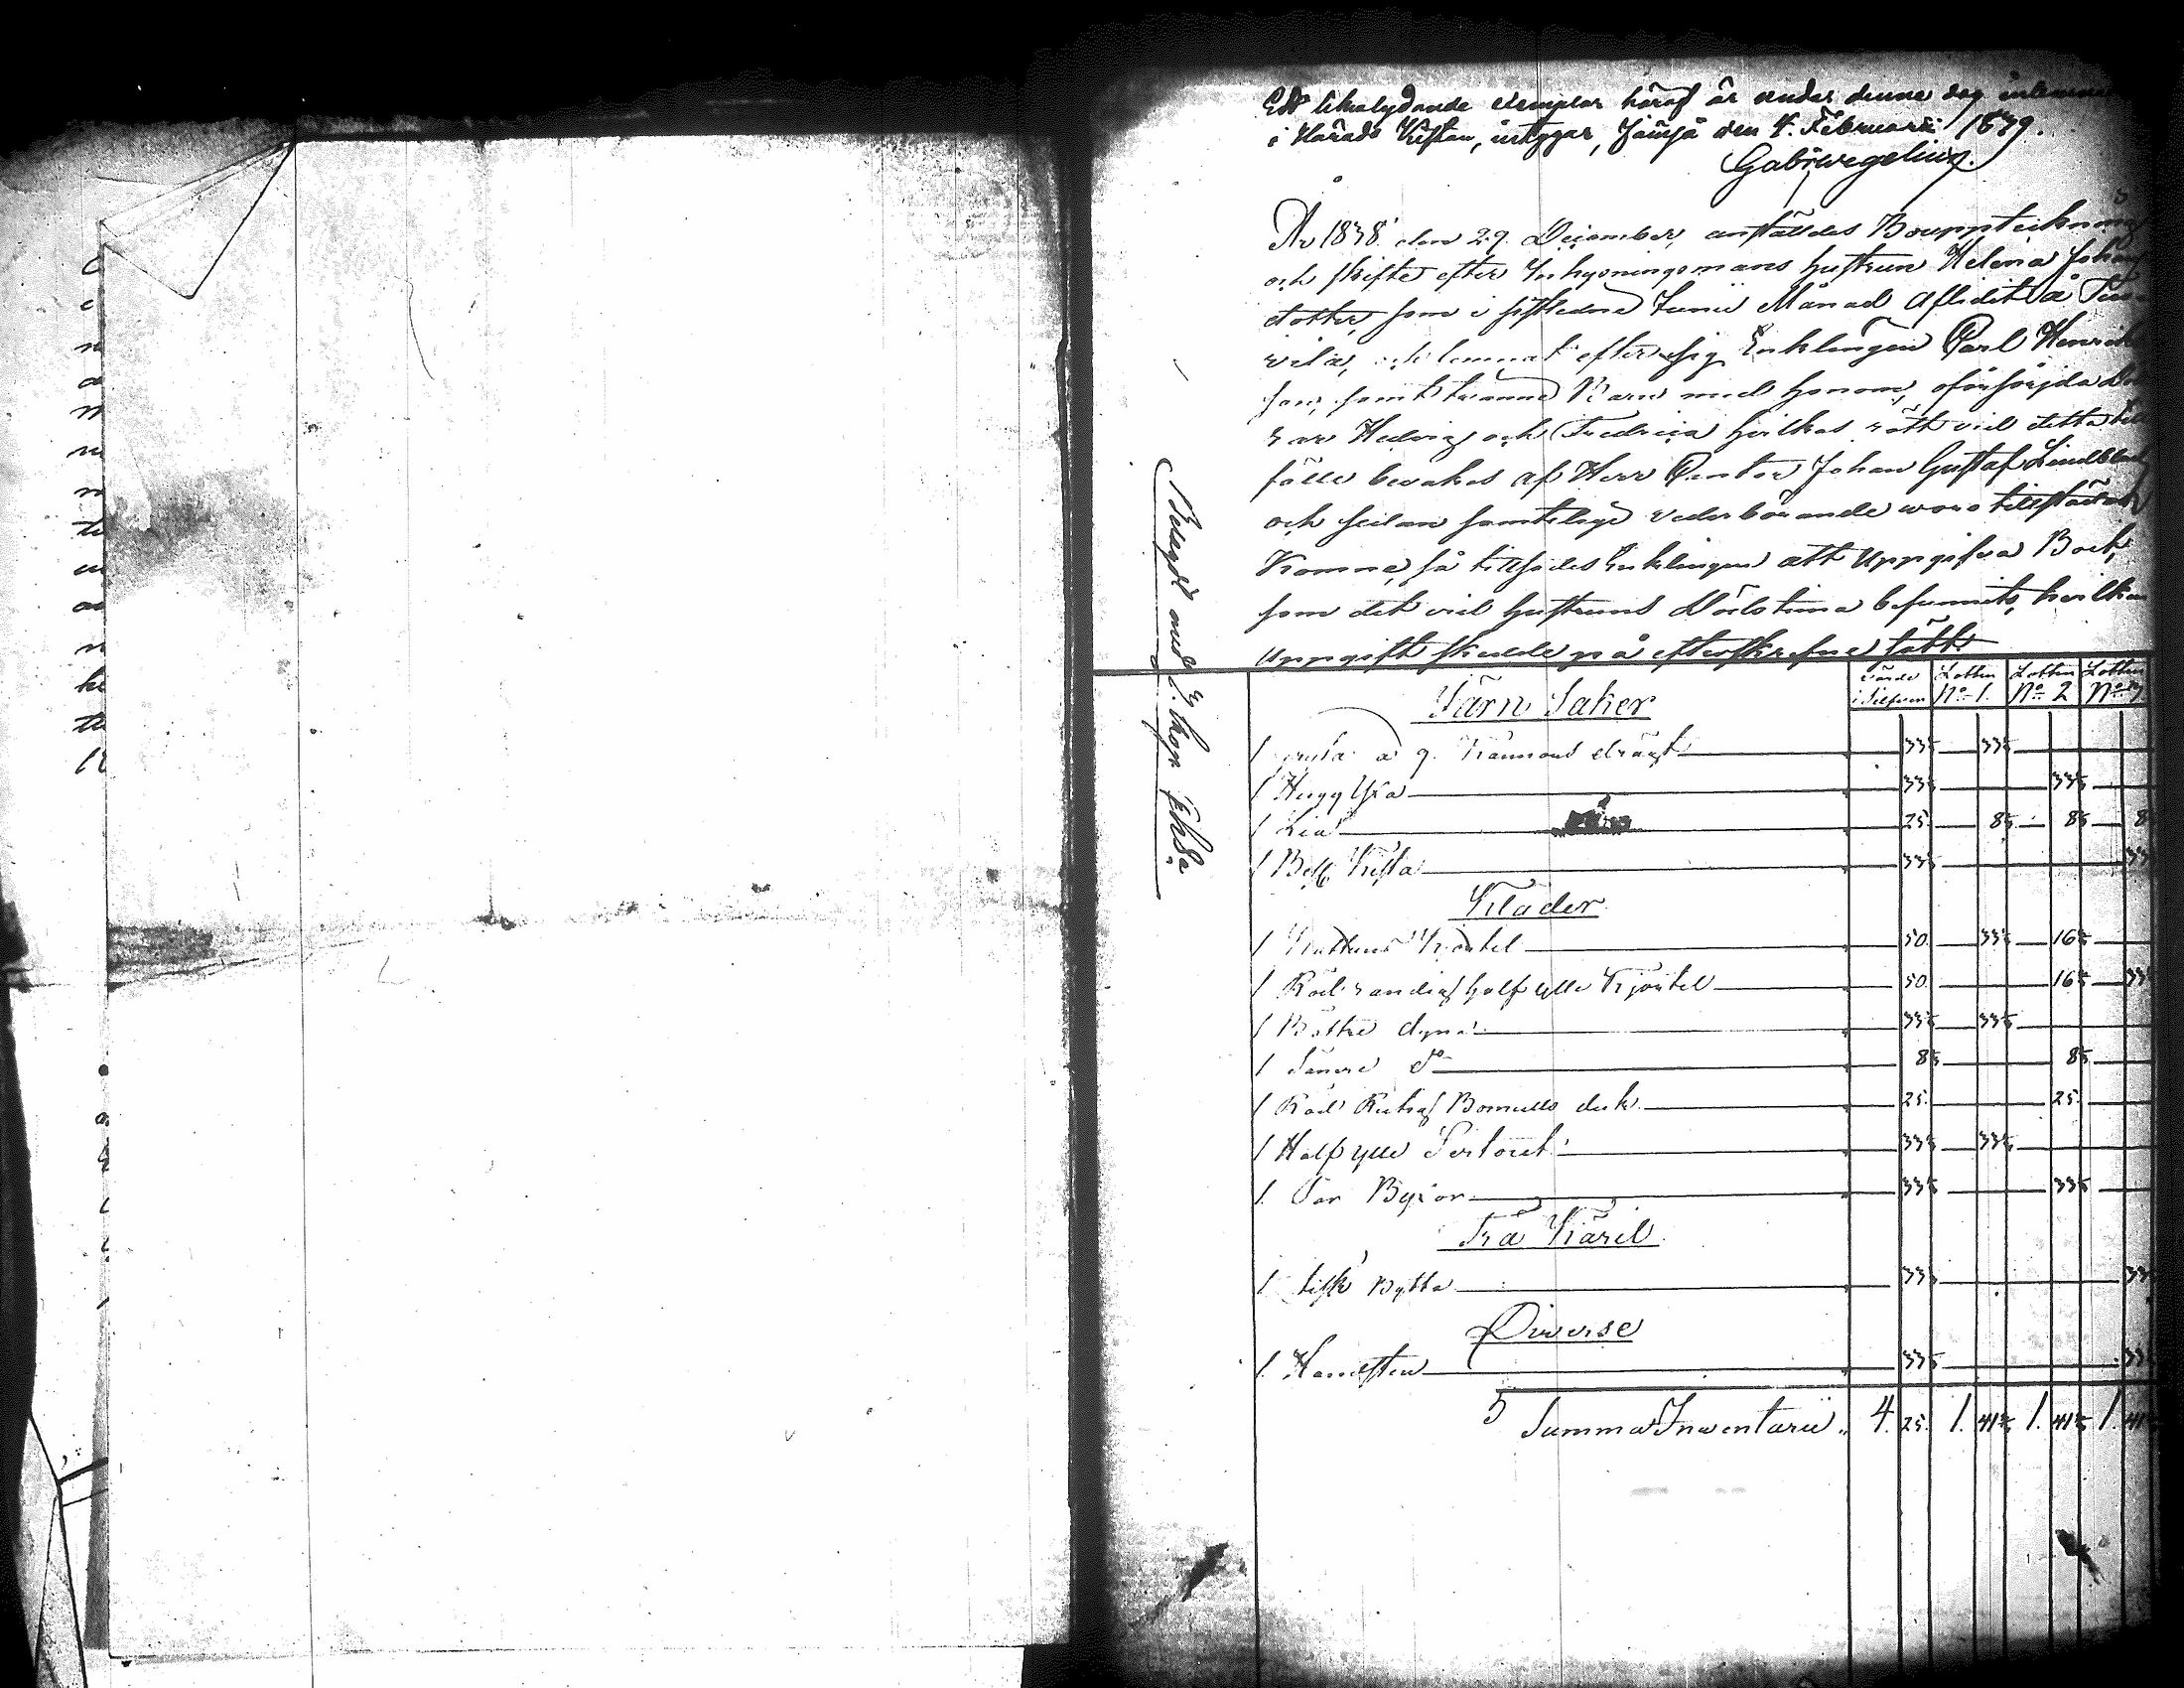 Ett likalydande exemplar häraf är under denne dag inlemna
i Härads Kistan, intygar, Jämsä den 4. Februarii 1839.
Gab: Wegelius.
År 1838. den 29. December, anstäldes Bouppteckning
och skifte efter Inhysningsmans hustrun Helena Johans
dotter, som i sistledne Junii Månad aflidit å
vila, och lemnat efter sig Enklingen Carl Henrik
son, samt tvänne Barn med honom, oförsörjda
rar Hedvig och Fredrica hvilkas rätt vid detta till
fälle bevakas af Herr Cantor Johan Gustaf Lindblad
och sedan samtelige vederbörande woro tillstädes
Komne, så tillsades Enklingen att Uppgifva Boet,
som det vid hustruns Dödstima befunnits, hvilken
Uppgift skedde på efterskrefne sätt
Värde i Silfver Lotten No 1. Lotten No 2 Lotten No 3
Järn Saker
1 gryta a 9. Kannors drägt 33⅓ 33⅓
1 Hugg Yxa 33⅓ 33⅓
1 Lia 25. 8⅓ 8⅓ 8
1 Besl. Kista 33⅓ 33
Kläder
1 Kattuns Kjortel 50. 33⅓ 16⅔
1 Röd randig half ylle Kjortel 50. 16⅔ 33
1 Bättre dyna 33⅓ 33⅓
1 Sämre do 8⅓ 8⅓
1 Röd Rutig Bomulls duk 25. 25.
1 Half ylle 33⅓ 33⅓
1. Par Byxor 33⅓ 33⅓
Trä Käril
1 Bytta 33⅓ 33
Diverse
1. Handsten 33⅓ 33
Summa Inventarii 4. 25. 1. 41⅔ 1. 41⅔ 1. 41